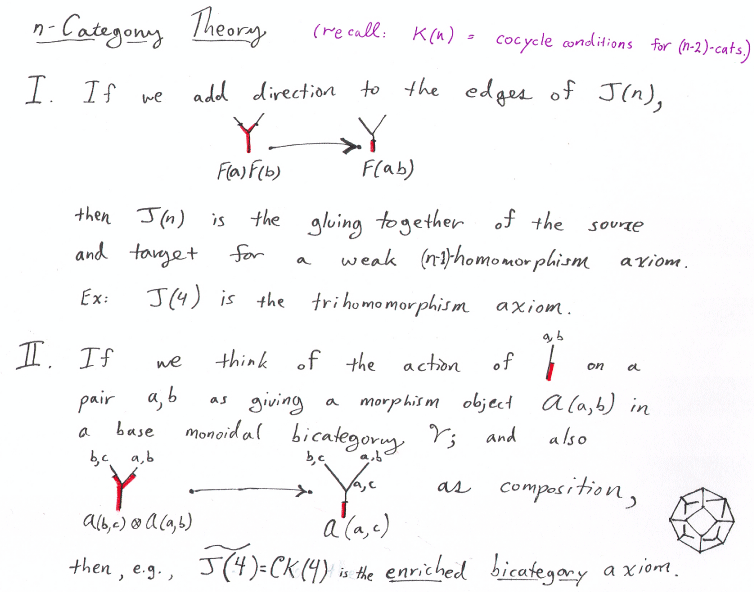 n-Category Theory (recall: K(n) = cocycle conditions for (n-2)-cats.)
I. If we add direction to the edges of J(n),
F(a)F(b) F(ab)
then J(n) is the gluing together of the source
and target for a weak (n-1)-homomorphism axiom.
Ex: J(4) is the trihomomorphism axiom.
a,b
II. If we think of the action of on a
pair a,b as giving a morphism object A(a,b) in
a base monoidal bicategory V; and also
b,c a,b b,c a,b
a,c as composition,
A(b,c) ⊗ A(a,b) A(a,c)
then, e.g., J͠(4)=CK(4) is the enriched bicategory axiom.